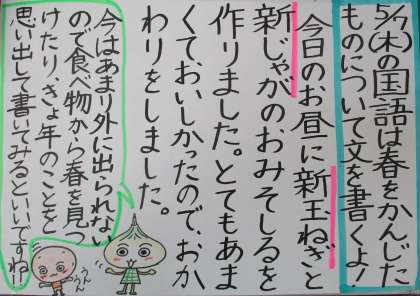 5/7(木)の国語は春をかんじた
ものについて文を書くよ!
今日のお昼に新玉ねぎと
新じゃがのおみそしるを
作りました。とてもあま
くて、おいしかったので、おか
わりをしました。
今はあまり外に出られない
ので食べ物から春を見つ
けたり、きょ年のことを
思い出して書いてみるといいですね!
うんうん